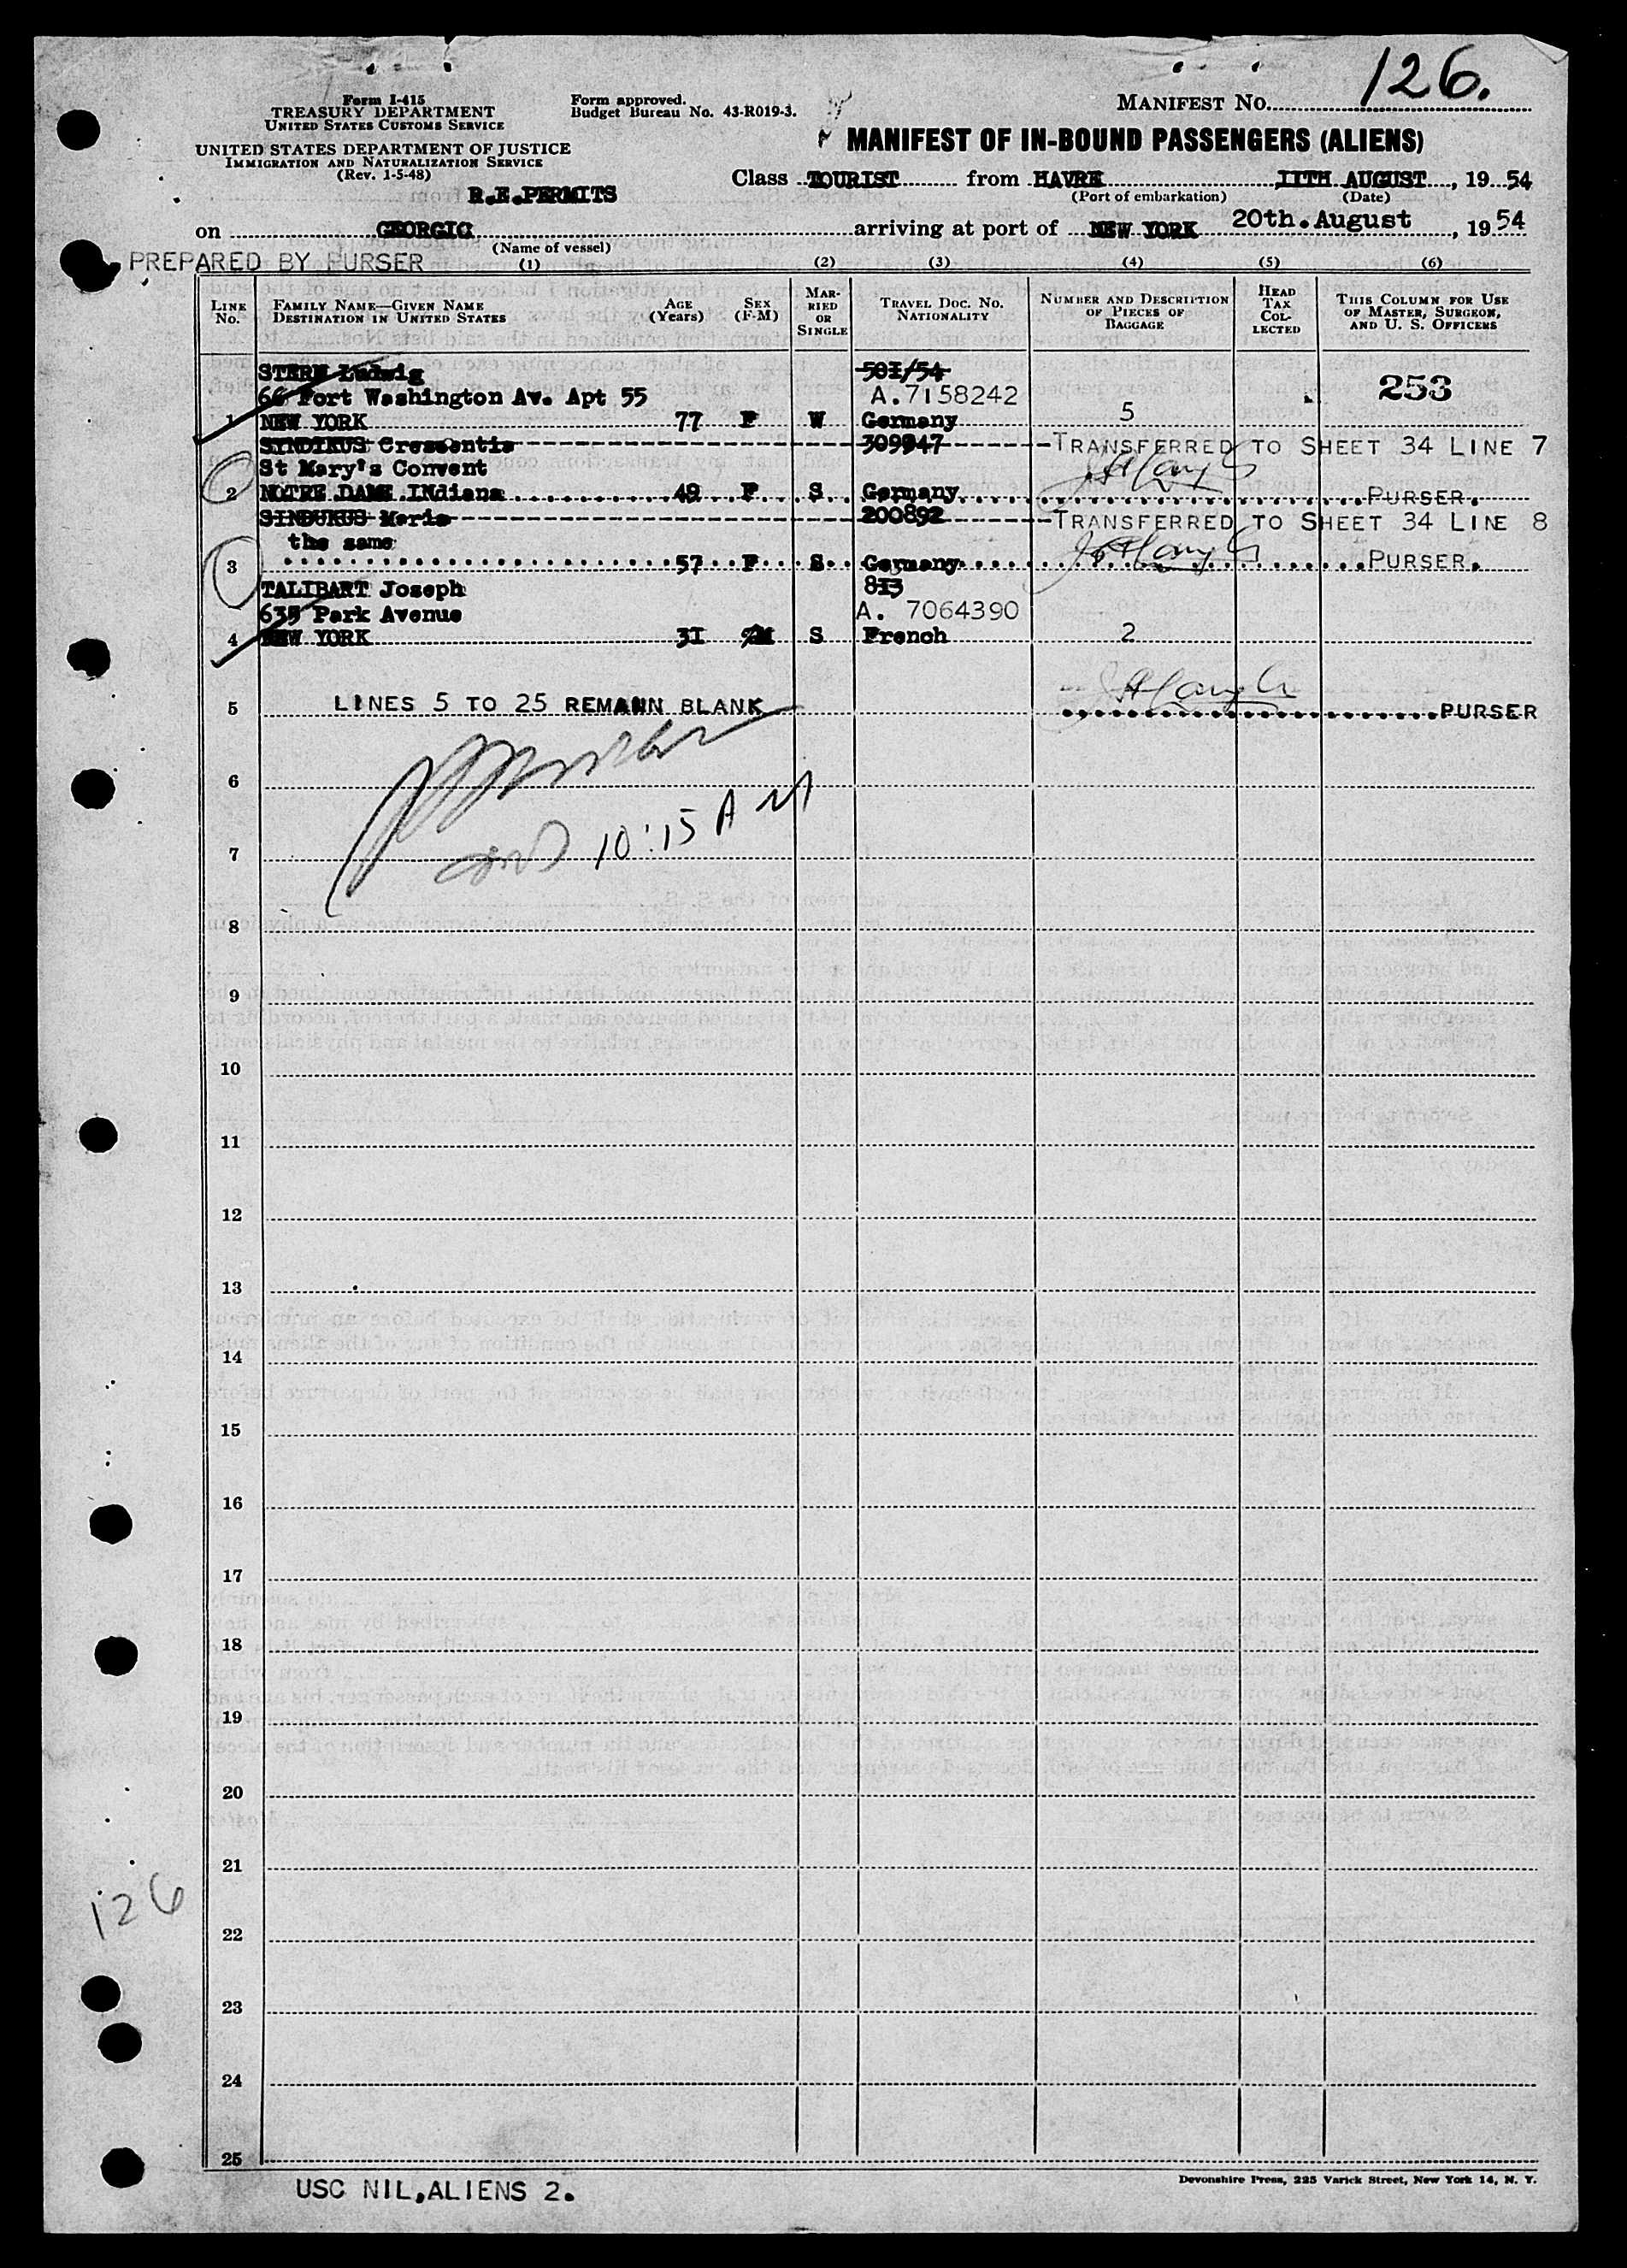 126.
Form I-415
TREASURY DEPARTMENT
UNITED STATES CUSTOMS SERVICE
Form approved.
Budget Bureau No. 43-R019-3.
MANIFEST NO.
UNITED STATES DEPARTMENT OF JUSTICE
IMMIGRATION AND NATURALIZATION SERVICE
(Rev. 1-5-48)
MANIFEST OF IN-BOUND PASSENGERS (ALIENS)
R.E.PERMITS
Class TOURIST from HAVRE 11TH AUGUST, 1954
(Port of embarkation) (Date)
on GEORGIC arriving at port of NEW YORK 20th.August, 1954
(Name of vessel)
PREPARED BY PURSER
(1) (2) (3) (4) (5) (6)
LINE NO. FAMILY NAME—GIVEN NAME DESTINATION IN UNITED STATES AGE (Years) SEX (F-M) MARRIED OR SINGLE TRAVEL DOC. NO. NATIONALITY NUMBER AND DESCRIPTION OF PIECES OF BAGGAGE HEAD TAX COLLECTED THIS COLUMN FOR USE OF MASTER, SURGEON, AND U. S. OFFICERS
STERN Ludwig 50I/54
66 Fort Washington Av. Apt 55 A.7158242 253
1 NEW YORK 77 F W Germany 5
SYNDIKUS Crescentia 309947 TRANSFERRED TO SHEET 34 LINE 7
St Mary's Convent
2 NOTRE DAME INdiana 49 F S Germany PURSER.
SINDUKUS Maria 200892 TRANSFERRED TO SHEET 34 LINE 8
the same
3 57 F S Germany PURSER.
TALIBART Joseph 813
635 Park Avenue A. 7064390
4 NEW YORK 3I M S French 2
5 LINES 5 TO 25 REMAIN BLANK PURSER
6
10:15 AM
7
8
9
10
11
12
13
14
15
16
17
18
19
20
21
126
22
23
24
25
USC NIL,ALIENS 2.
Devonshire Press, 225 Varick Street, New York 14, N. Y.